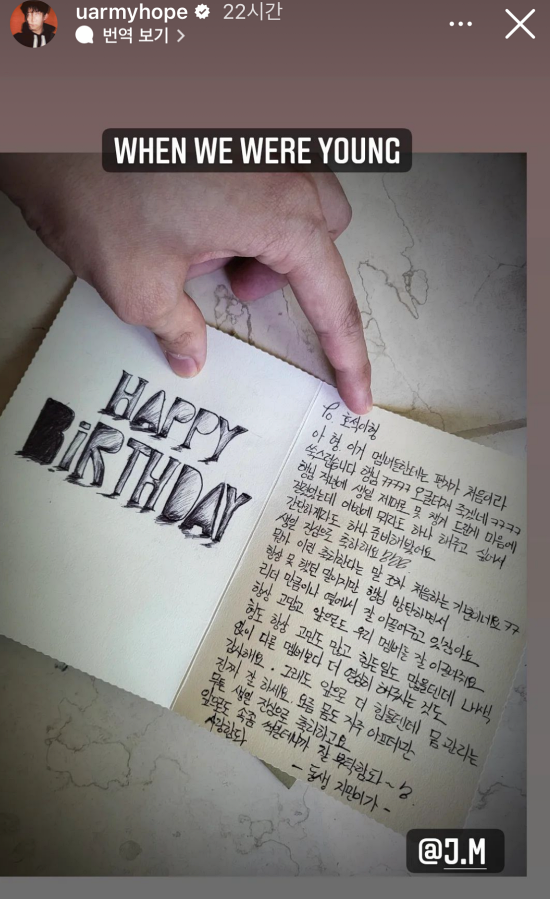 uarmyhope 22시간
번역 보기
WHEN WE WERE YOUNG
HAPPY
BIRTHDAY
To 호석이형
아 형 이거 멤버들한테는 편지가 처음이라
쑥스럽습니다 형님 ㅋㅋㅋㅋ 오글거려 죽겠네 ㅋㅋㅋㅋ
형님 작년에 생일 제대로 못 챙겨 드린게 마음에
걸렸었는데 이번에 뭐라도 하나 해주고 싶어서
간단하게라도 하나 준비해봤어요
생일 진심으로 축하해요
뭔가 이런 축하한다는 말 조차 처음하는 기분이네요 ㅋㅋ
항상 못 했던 말이지만 형님 방탄하면서
리더 만큼이나 옆에서 잘 이끌어주고 있잖아요
항상 고맙고 앞으로도 우리 멤버들 잘 이끌어줘요
형도 항상 고민도 많고 힘든일도 많을텐데 내색
없이 다른 멤버보다 더 열심히 해주는 것도
감사해요. 그리고 앞으로 더 힘들텐데 몸 관리는
진짜 잘 하세요. 요즘 몸도 자주 아프더만
무튼 생일 진심으로 축하하고요
앞으로도 잘 부탁함다~
사랑함다
- 동생 지민이가 -
@J.M